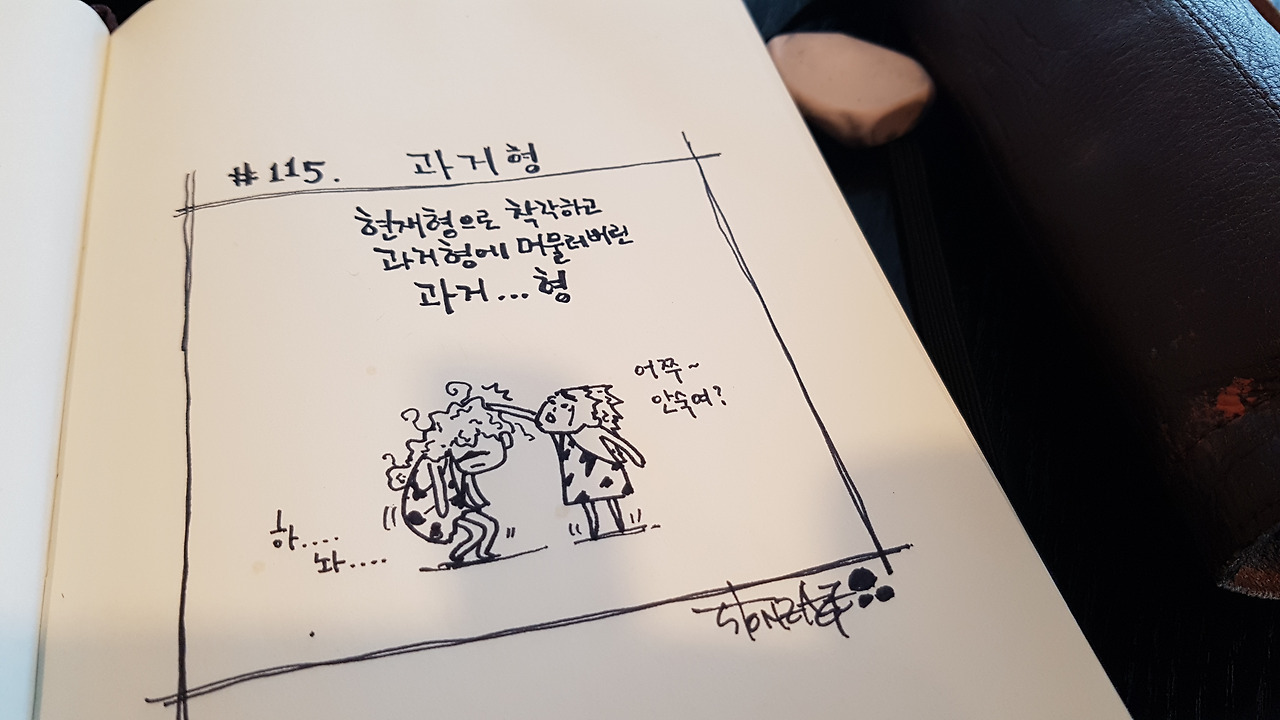 #115. 과거형
현재형으로 착각하고
과거형에 머물러버린
과거...형
어쭈~
안숙여?
하....
놔....